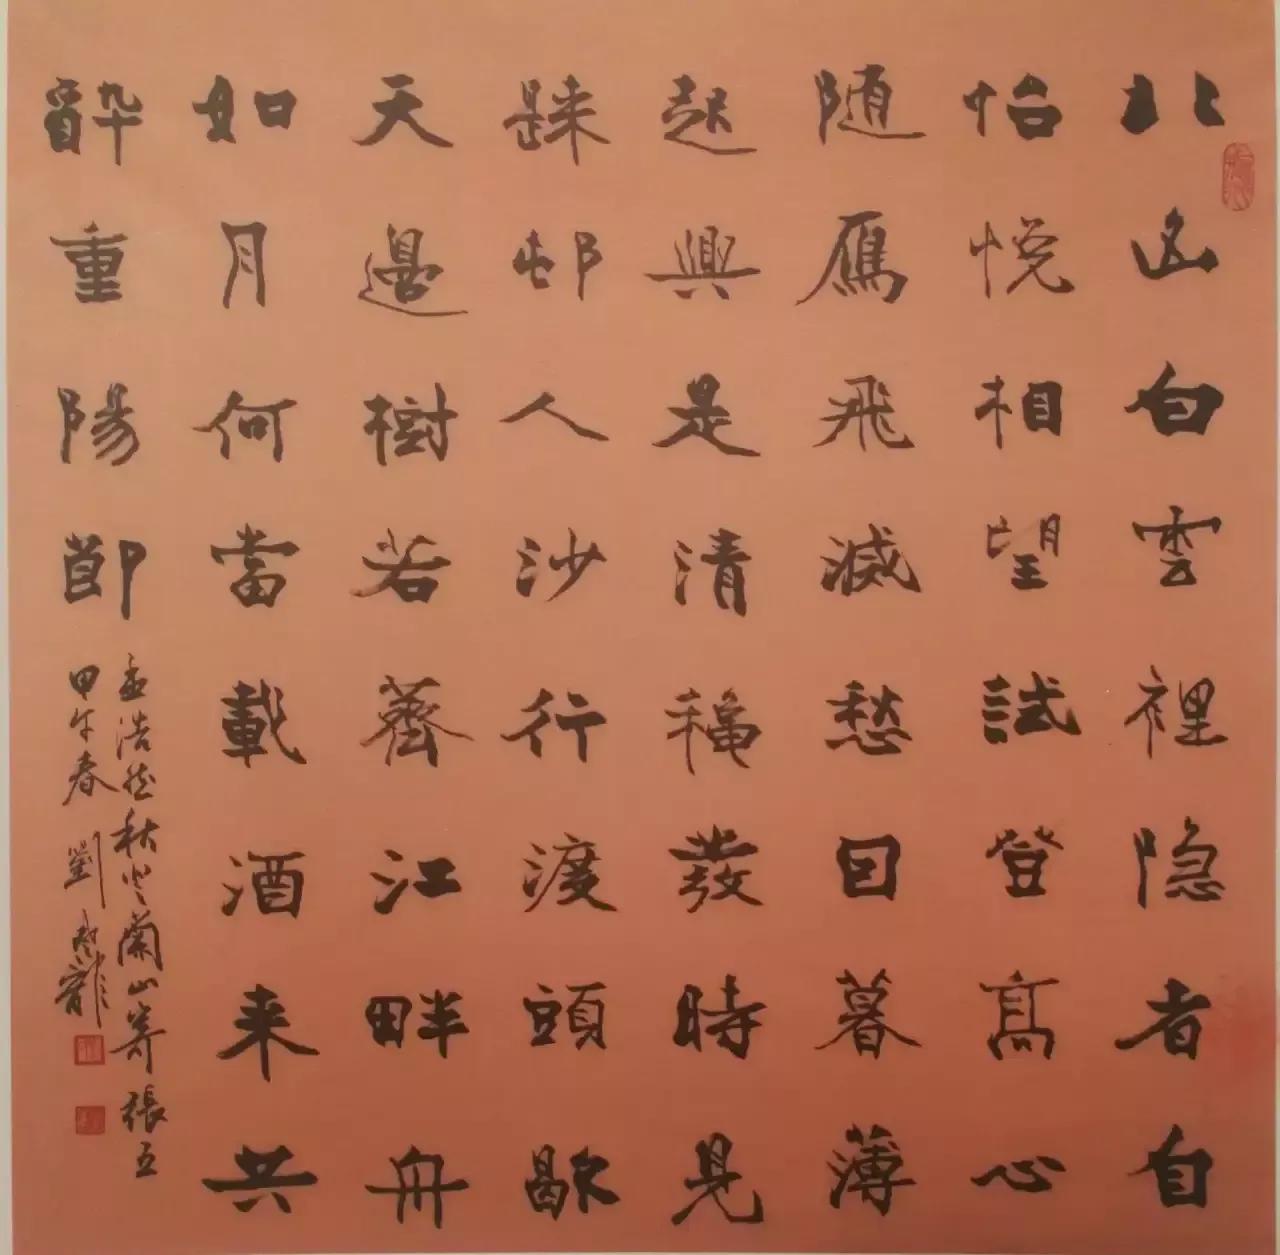 北山白雲裡隐者自
怡悦相望試登高心
随鴈飛滅愁因暮薄
起興是清穐發時見
歸邨人沙行渡頭歇
天邊樹若薺江畔舟
如月何當載酒来共
酔重陽節
孟浩然秋登蘭山寄張五
甲午春 劉